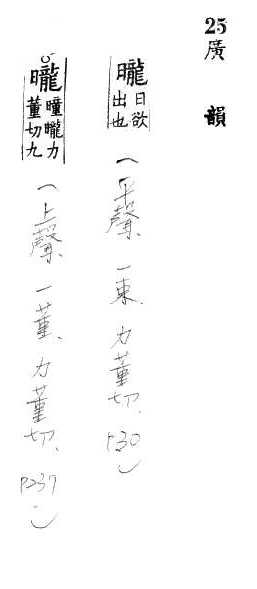 25廣韻
曨日欲出也(平聲、一東、力董切、P30)
曨曈曨力董切九(上聲、一董、力董切、P237)